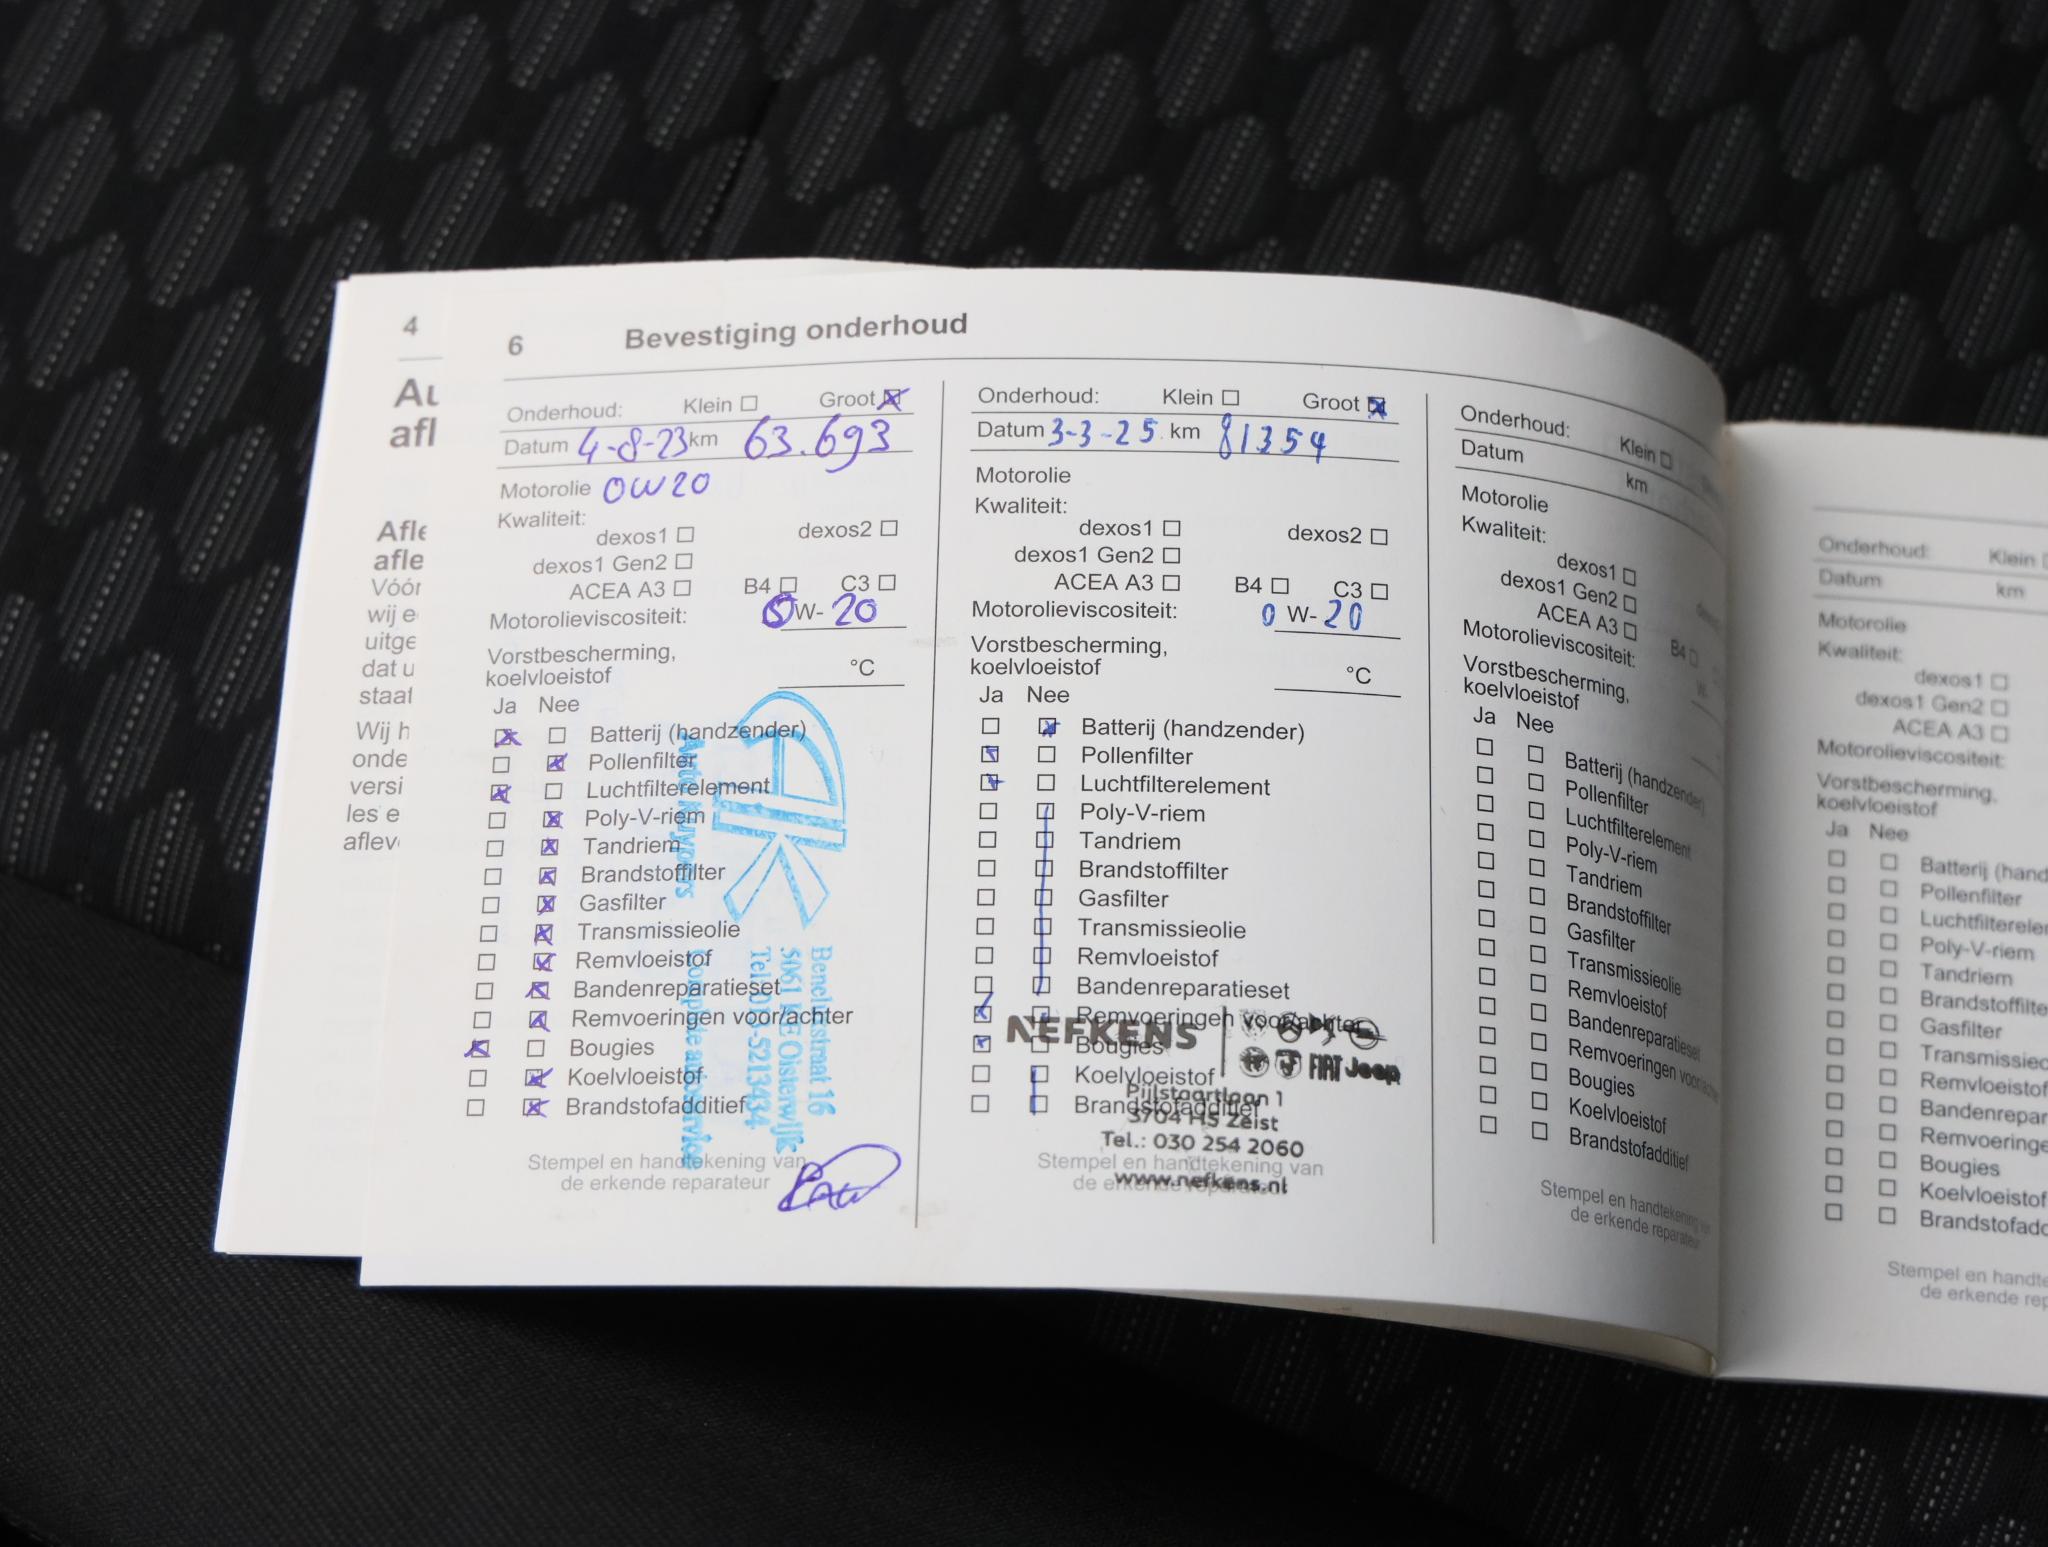 4
Au
afl
Afle
afle
Vóór
wij e
uitge
dat u
staat
Wij h
onde
versi
les e
aflev
6 Bevestiging onderhoud
Onderhoud: Klein ☐ Groot ☒
Datum 4-8-23 km 63.693
Motorolie 0W20
Kwaliteit:
dexos1 ☐ dexos2 ☐
dexos1 Gen2 ☐
ACEA A3 ☐ B4 ☐ C3 ☐
Motorolieviscositeit: W- 20
Vorstbescherming,
koelvloeistof °C
Ja Nee
☒ ☐ Batterij (handzender)
☐ ☒ Pollenfilter
☒ ☐ Luchtfilterelement
☐ ☒ Poly-V-riem
☐ ☒ Tandriem
☐ ☒ Brandstoffilter
☐ ☒ Gasfilter
☐ ☒ Transmissieolie
☐ ☒ Remvloeistof
☐ ☒ Bandenreparatieset
☐ ☒ Remvoeringen voor/achter
☒ ☐ Bougies
☐ ☒ Koelvloeistof
☐ ☒ Brandstofadditief
Stempel en handtekening van
de erkende reparateur
Kuypers
Complete autoservice
Beneluxstraat 16
5061 Oisterwijk
Tel. 013-5213434
Onderhoud: Klein ☐ Groot ☒
Datum 3-3-25 km 81354
Motorolie
Kwaliteit:
dexos1 ☐ dexos2 ☐
dexos1 Gen2 ☐
ACEA A3 ☐ B4 ☐ C3 ☐
Motorolieviscositeit: 0 W- 20
Vorstbescherming,
koelvloeistof °C
Ja Nee
☐ ☒ Batterij (handzender)
☒ ☐ Pollenfilter
☒ ☐ Luchtfilterelement
☐ ☐ Poly-V-riem
☐ ☐ Tandriem
☐ ☐ Brandstoffilter
☐ ☐ Gasfilter
☐ ☐ Transmissieolie
☐ ☐ Remvloeistof
☐ ☐ Bandenreparatieset
☒ ☐ Remvoeringen voor/achter
☒ ☐ Bougies
☐ ☐ Koelvloeistof
☐ ☐ Brandstofadditief
Stempel en handtekening van
de erkende reparateur
NEFKENS
FIAT Jeep
Pijlstaartlaan 1
3704 HS Zeist
Tel.: 030 254 2060
www.nefkens.nl
Onderhoud: Klein ☐
Datum km
Motorolie
Kwaliteit:
dexos1 ☐
dexos1 Gen2 ☐
ACEA A3 ☐ B4 ☐
Motorolieviscositeit: W-
Vorstbescherming,
koelvloeistof
Ja Nee
☐ ☐ Batterij (handzender)
☐ ☐ Pollenfilter
☐ ☐ Luchtfilterelement
☐ ☐ Poly-V-riem
☐ ☐ Tandriem
☐ ☐ Brandstoffilter
☐ ☐ Gasfilter
☐ ☐ Transmissieolie
☐ ☐ Remvloeistof
☐ ☐ Bandenreparatieset
☐ ☐ Remvoeringen voor/achter
☐ ☐ Bougies
☐ ☐ Koelvloeistof
☐ ☐ Brandstofadditief
Stempel en handtekening van
de erkende reparateur
Onderhoud: Klein ☐
Datum km
Motorolie
Kwaliteit:
dexos1 ☐
dexos1 Gen2 ☐
ACEA A3 ☐
Motorolieviscositeit:
Vorstbescherming,
koelvloeistof
Ja Nee
☐ ☐ Batterij (hand
☐ ☐ Pollenfilter
☐ ☐ Luchtfilterele
☐ ☐ Poly-V-riem
☐ ☐ Tandriem
☐ ☐ Brandstoffilte
☐ ☐ Gasfilter
☐ ☐ Transmissie
☐ ☐ Remvloeistof
☐ ☐ Bandenrepar
☐ ☐ Remvoeringe
☐ ☐ Bougies
☐ ☐ Koelvloeistof
☐ ☐ Brandstofadd
Stempel en handte
de erkende rep